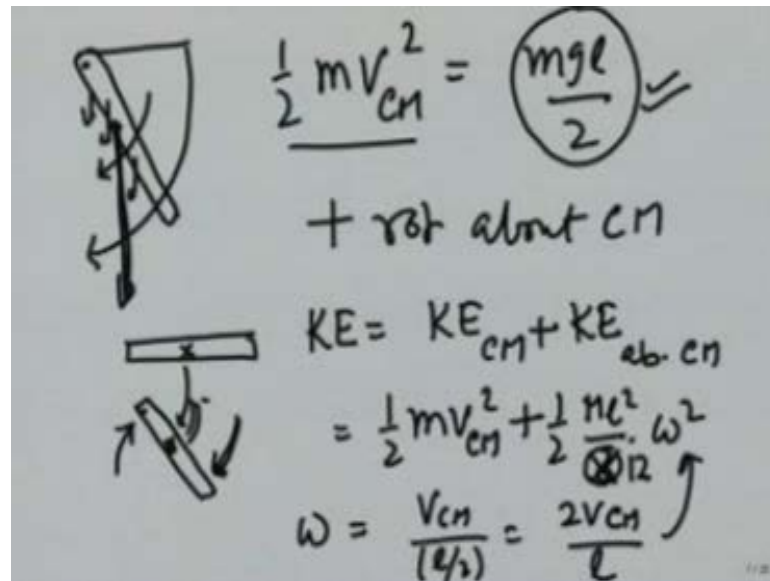 1/2 mV_CM^2 = mgl/2
+ rot about CM
KE = KE_CM + KE_ab. CM
= 1/2 mV_CM^2 + 1/2 Ml^2/12 · ω^2
ω = V_CM/(l/2) = 2V_CM/l